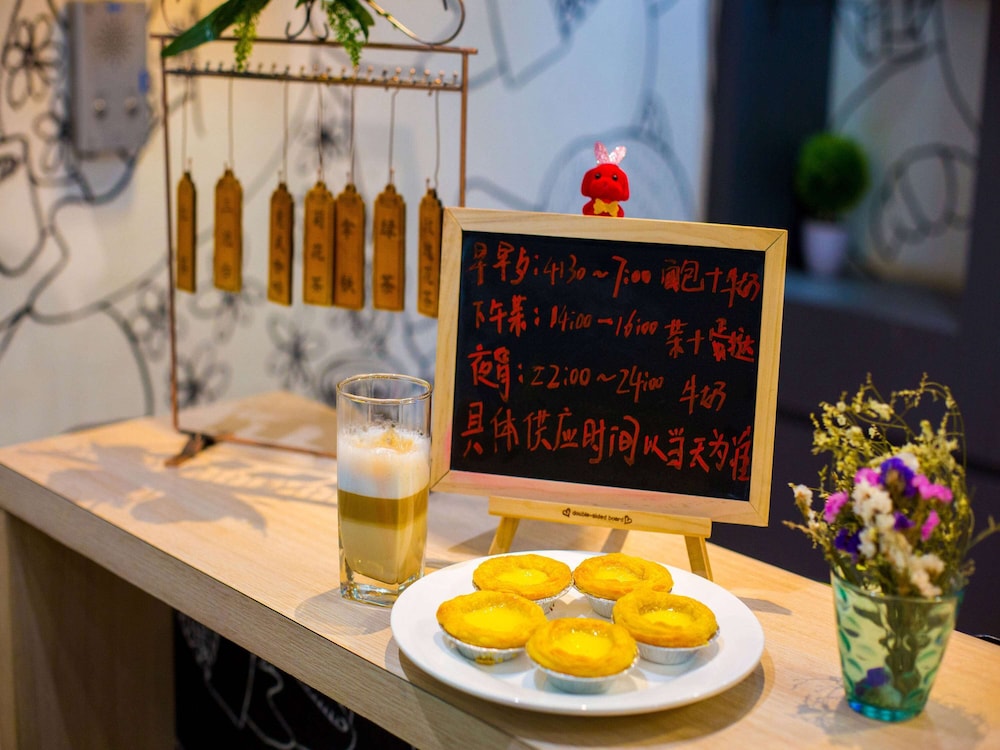 菊花茶
绿茶
玫瑰花茶
早早夕:4:30~7:00 面包十牛奶
下午茶:14:00-16:00 茶十蛋挞
夜宵:22:00~24:00 牛奶
具体供应时间以当天为准
double-sided board